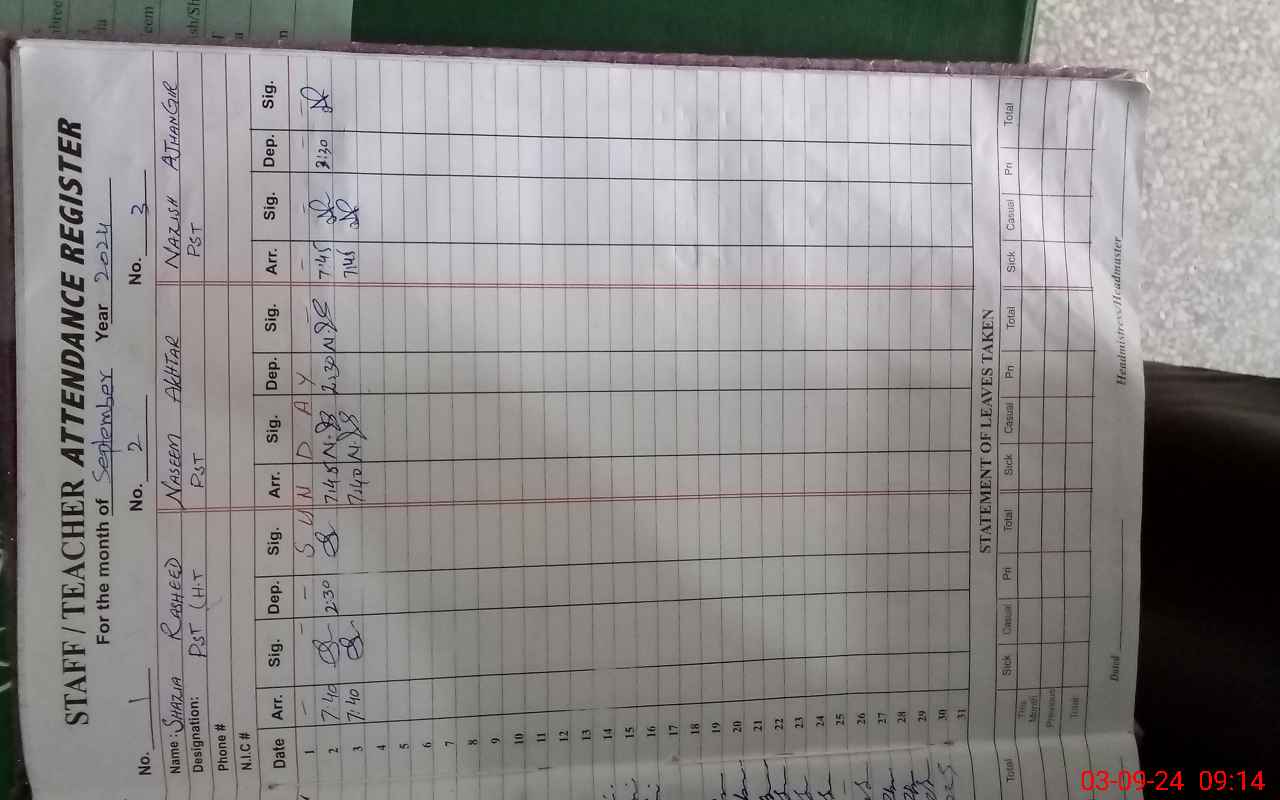 STAFF / TEACHER ATTENDANCE REGISTER
For the month of September Year 2024
No. 1 No. 2 No. 3
Name : SHAZIA RASHEED NASEEM AKHTAR NAZISH
Designation: PST (H.T PST PST
Phone #
N.I.C #
Date Arr. Sig. Dep. Sig. Arr. Sig. Dep. Sig. Arr. Sig. Dep. Sig.
1 – – – S U N D A Y – – – –
2 7:40 2:30 7:45 2:30 7:45 2:30
3 7:40 7:40 7:45
4
5
6
7
8
9
10
11
12
13
14
15
16
17
18
19
20
21
22
23
24
25
26
27
28
29
30
31
STATEMENT OF LEAVES TAKEN
Total Sick Casual Pri Total Sick Casual Pri Total Sick Casual Pri Total
This Month
Previous
Total
Dated Headmistress/Headmaster
03-09-24 09:14